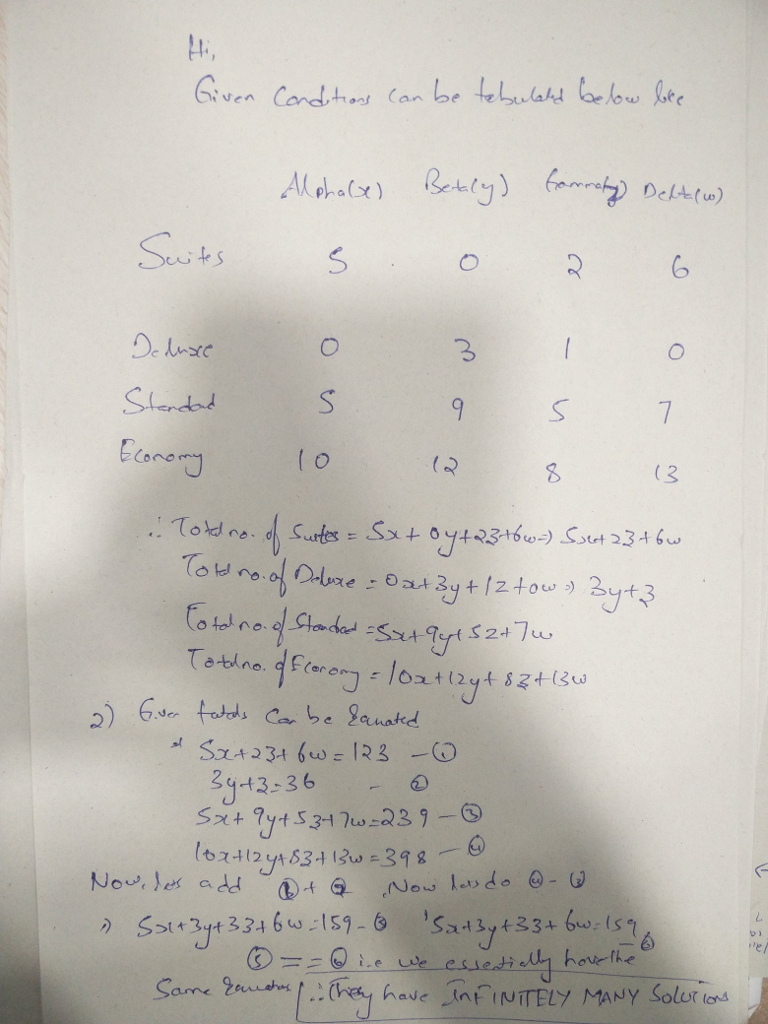 Hi,
Given Conditions can be tabulated below like
Alpha(x) Beta(y) Gamma(z) Delta(w)
Suites 5 0 2 6
Deluxe 0 3 1 0
Standard 5 9 5 7
Economy 10 12 8 13
∴ Total no. of Suites = 5x + 0y+2z+6w => 5x+2z+6w
Total no. of Deluxe = 0x+3y+1z+0w => 3y+z
Total no. of Standard = 5x+9y+5z+7w
Total no. of Economy = 10x+12y+8z+13w
2) Given totals can be Equated
5x+2z+6w = 123 - ①
3y+z=36 - ②
5x+9y+5z+7w=239 - ③
10x+12y+8z+13w=398 - ④
Now, lets add ①+②, Now lets do ④-③
=> 5x+3y+3z+6w=159-⑤ 5x+3y+3z+6w=159-⑥
⑤ == ⑥ i.e we essentially have the
Same Equations ∴ They have INFINITELY MANY Solutions